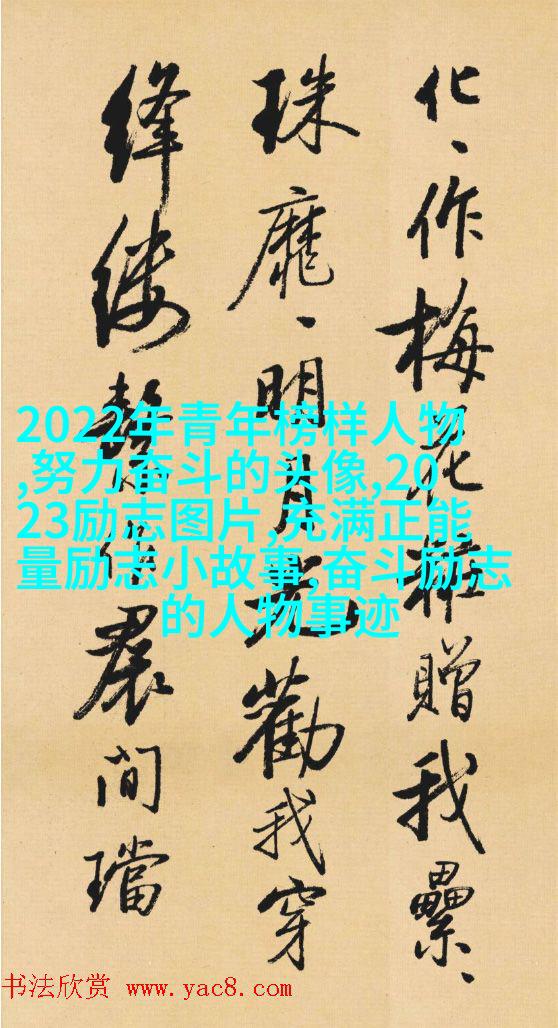 化、作梅花粧贈我纍、
珠靡、明月光勸我穿
絳縷繫作裠间璫
2022年青年榜样人物
,努力奋斗的头像,20
23励志图片,充满正能
量励志小故事,奋斗励志
的人物事迹
书法欣赏 www.yac8.com